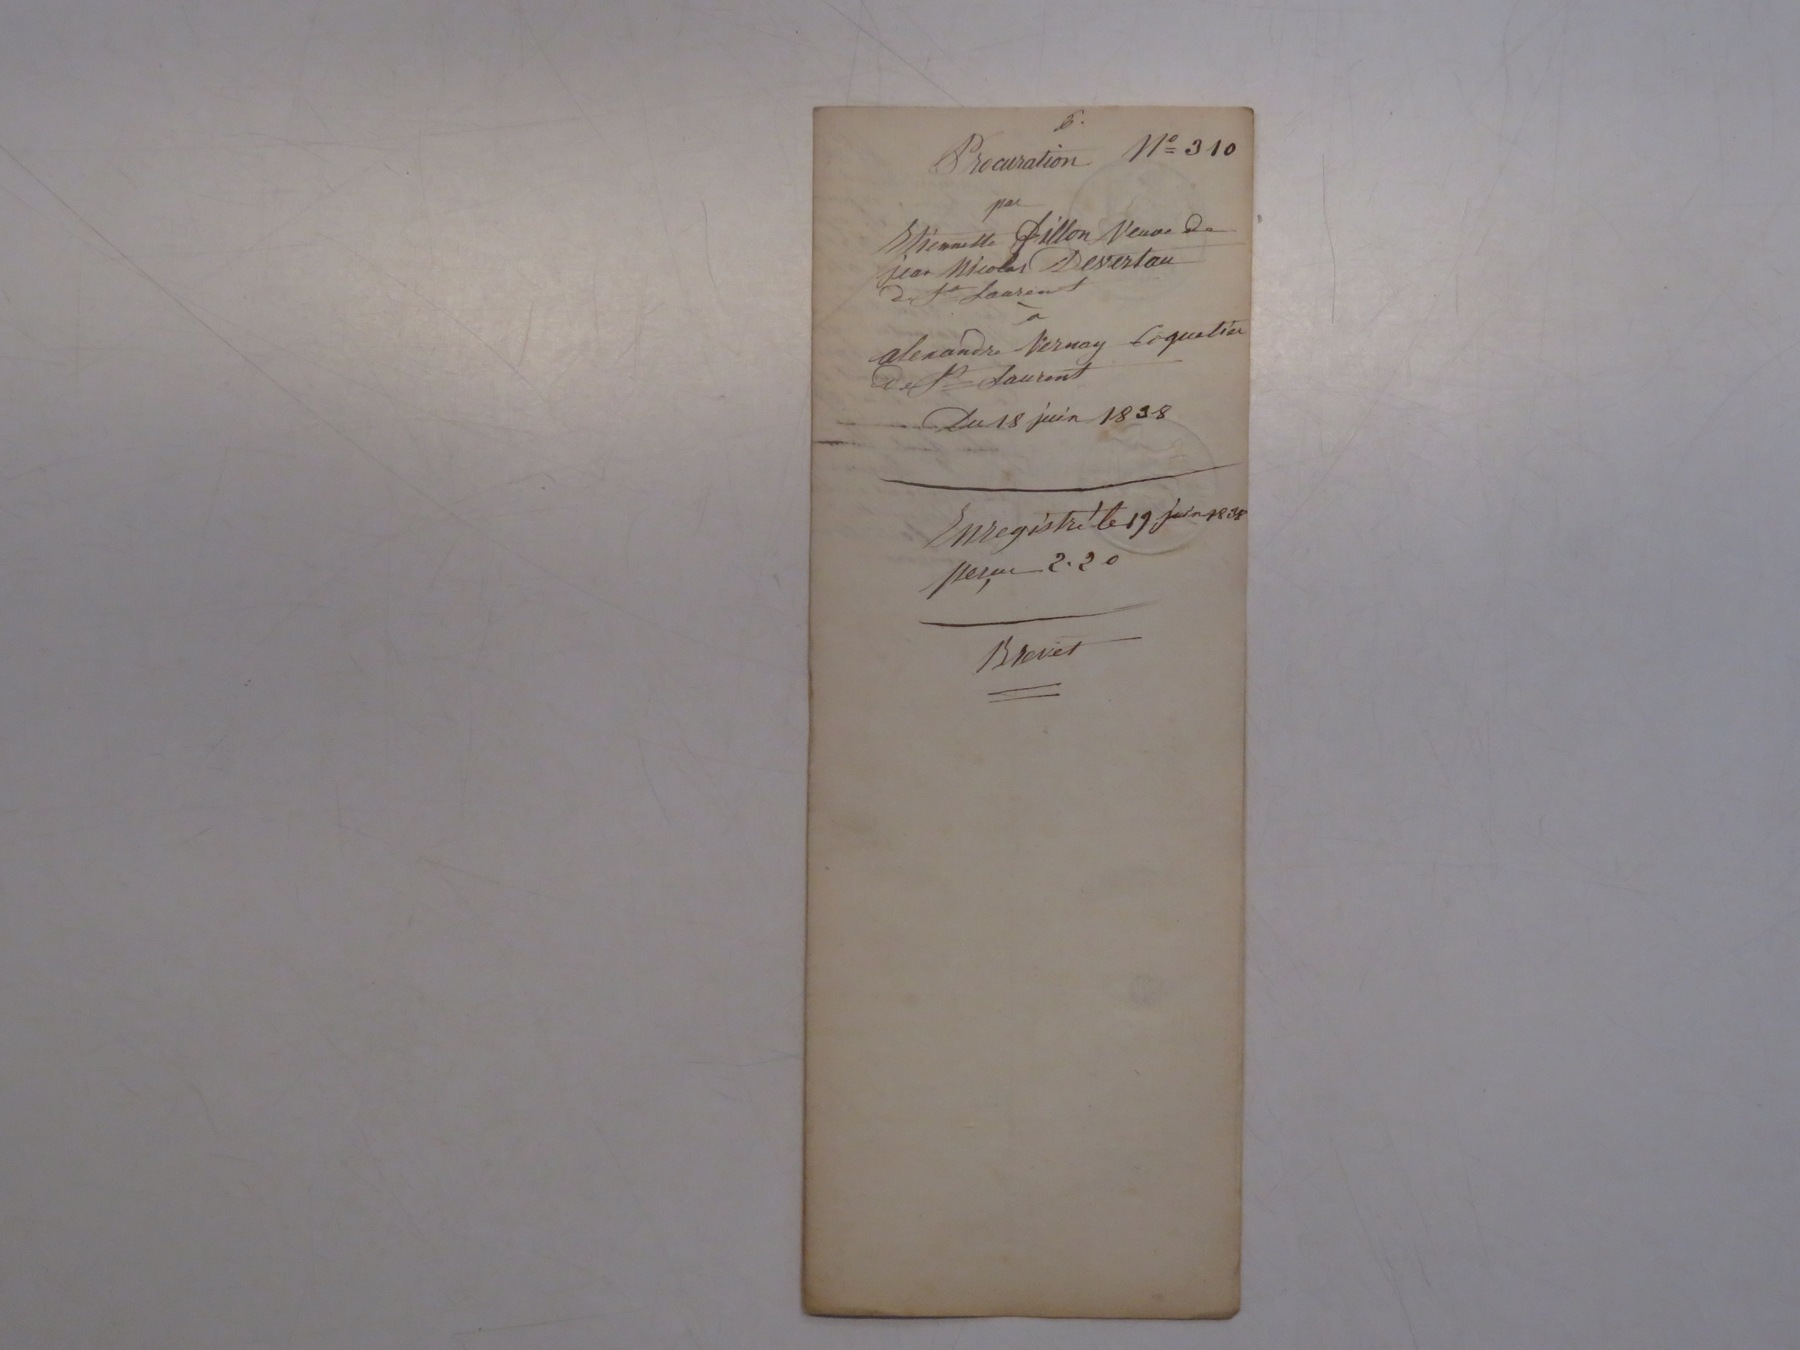 6.
Procuration Nº 310
par
Etiennette Fillon Veuve de
jean Nicolas Desvertau
de St Laurent
à
alexandre Vernay Coquetier
de St Laurent
Du 18 juin 1838
Enregistré le 19 juin 1838
perçu 2.20
Brevet